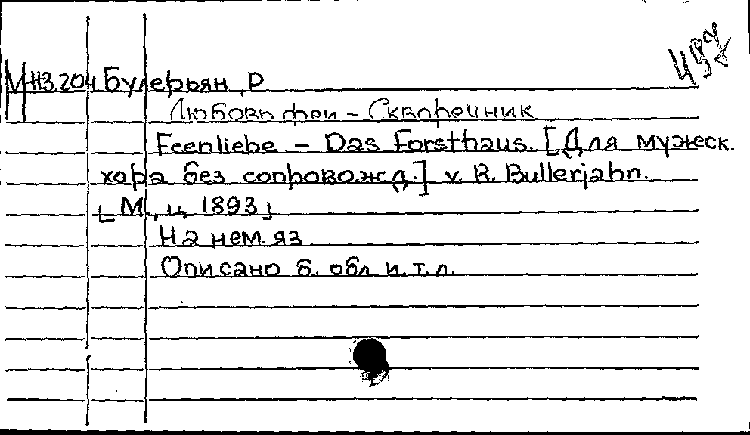 498
М Н3.204 Булерьян, Р
Любовь феи – Скворечник
Feenliebe – Das Forsthaus. [Для мужеск.
хора без сопровожд.] v. R. Bullerjahn.
[М., ц. 1893]
На нем. яз
Описано б. обл и. т. л.